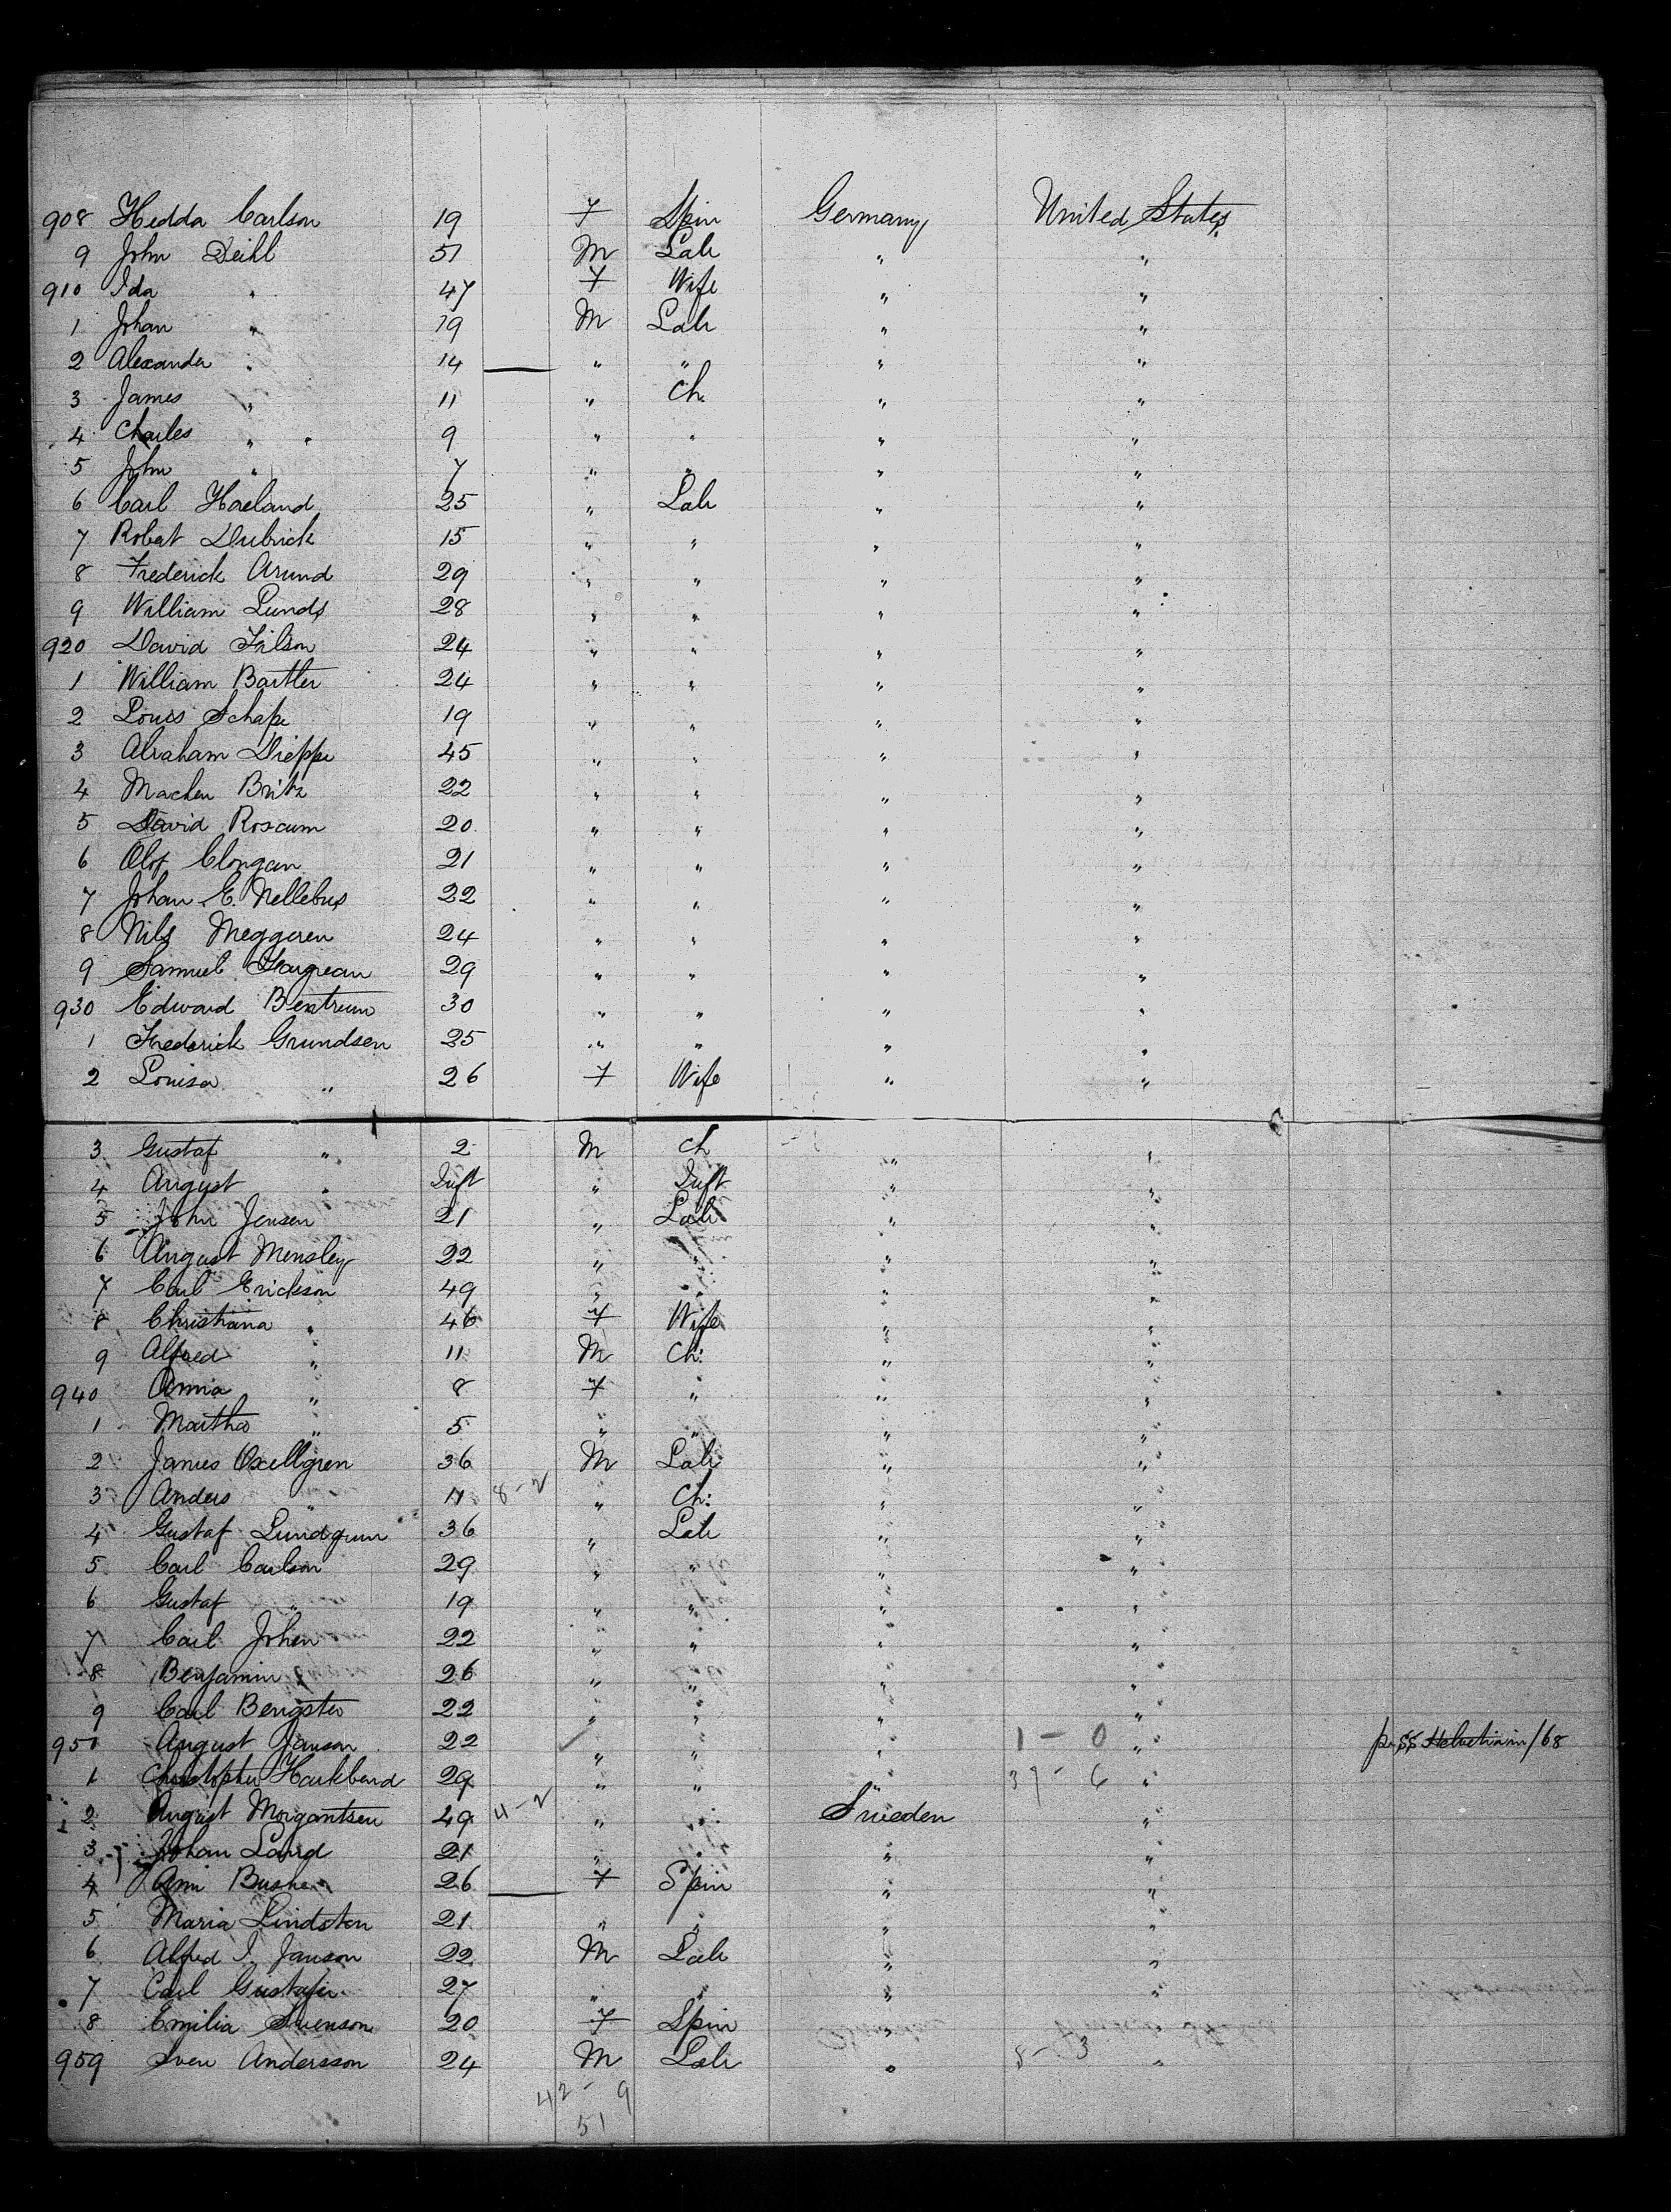 908 Hedda Carlson 19 F Spin Germany United States
9 John Deihl 51 M Lab " "
910 Ida " 47 F Wife " "
1 Johan " 19 M Lab " "
2 Alexander " 14 " " " "
3 James " 11 " Ch. " "
4 Charles " 9 " " " "
5 John " 7 " " " "
6 Carl Haeland 25 " Lab " "
7 Robert Dubrick 15 " " " "
8 Frederick Arund 29 " " " "
9 William Lunds 28 " " " "
920 David Filson 24 " " " "
1 William Bartler 24 " " " "
2 Louis Schape 19 " " " "
3 Abraham Dieppe 45 " " " "
4 Machen Britz 22 " " " "
5 David Roscum 20 " " " "
6 Olof Clongan 21 " " " "
7 Johan E. Nellebus 22 " " " "
8 Nils Meggeren 24 " " " "
9 Samuel 29 " " " "
930 Edward Bextrum 30 " " " "
1 Frederick Grundsen 25 " " " "
2 Louisa " 26 F Wife " "
3 Gustaf " 2 M Ch " "
4 August " Inft " Inft " "
5 John Jensen 21 " Lab " "
6 August Mensley 22 " " " "
7 Carl Erickson 49 " " " "
8 Christiana " 46 F Wife " "
9 Alfred " 11 M Ch: " "
940 Anna " 8 F " " "
1 Martha " 5 " " " "
2 James Oxellgren 36 M Lab " "
3 Anders " 11 8-2 " Ch: " "
4 Gustaf Lundgrun 36 " Lab " "
5 Carl Carlson 29 " " " "
6 Gustaf " 19 " " " "
7 Carl Johen 22 " " " "
8 Benjamin 26 " " " "
9 Carl Bengsten 22 " " " "
950 August Janson 22 " " " 1-0 " pr SS Helvetia in /68
1 Christopher Harkberd 29 " " " 37-6 "
2 August Morgantsen 49 4-2 " " Sweden "
3 Johan Land 21 " " " "
4 Ann 26 F Spin " "
5 Maria Lindsten 21 " " " "
6 Alfred I. Janson 22 M Lab " "
7 Carl Gustafer 27 " " " "
8 Emilia Svenson 20 F Spin " "
959 Sven Andersson 24 M Lab " 8-3 "
42-9
51